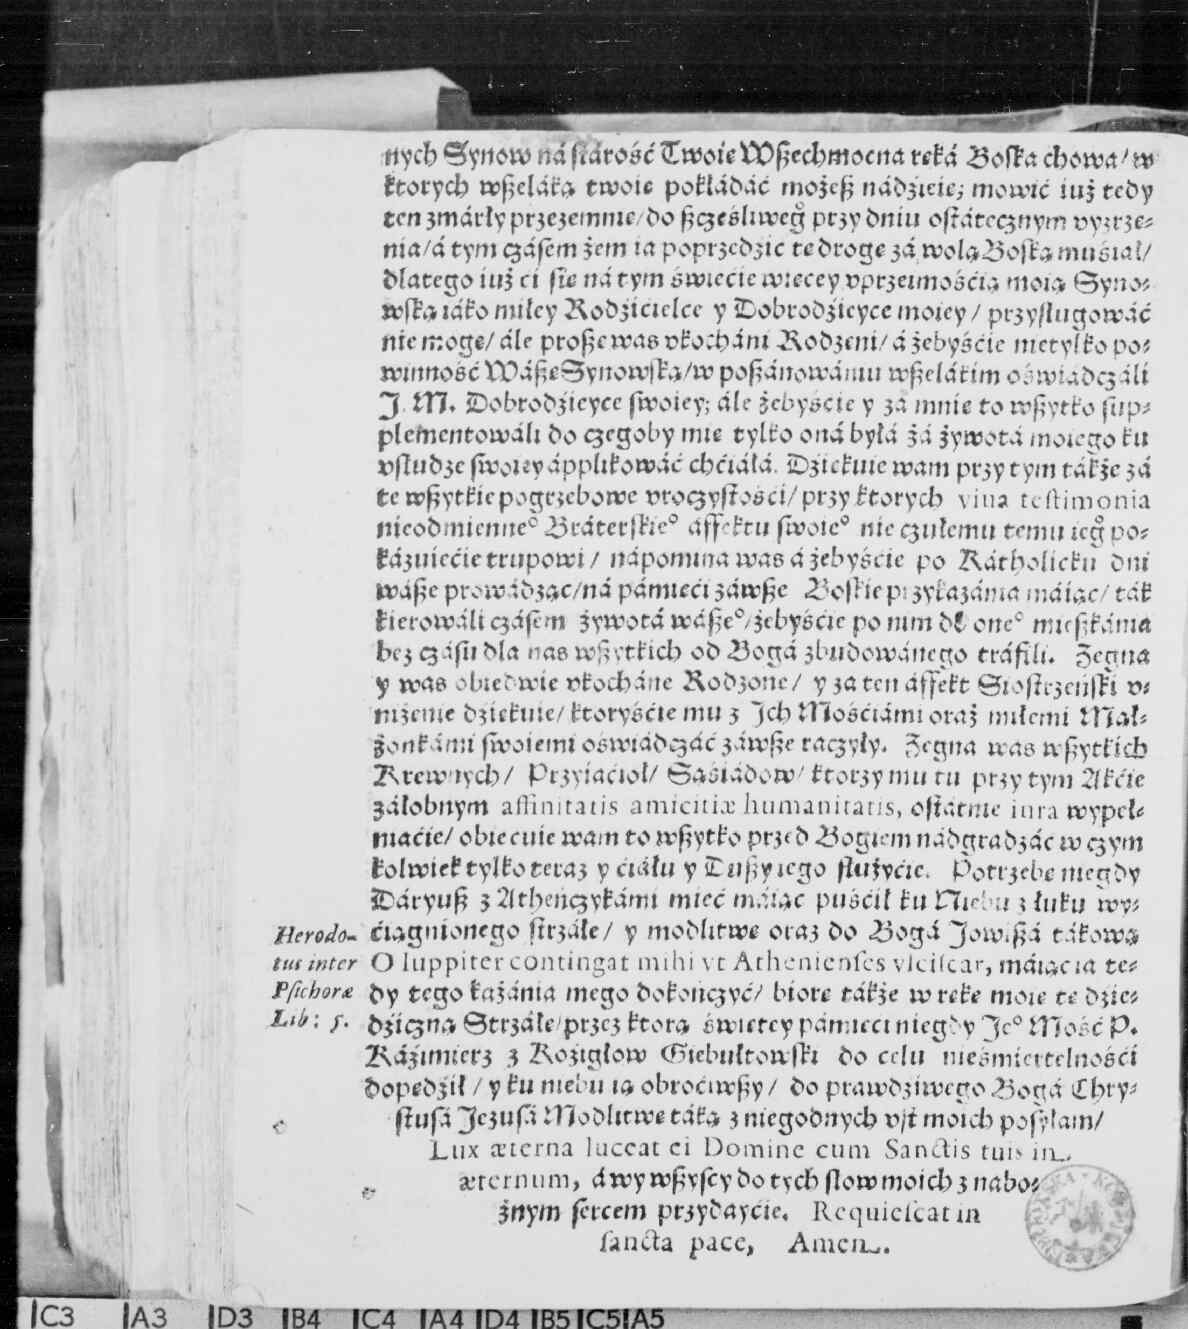 nych Synow ná stárość Twoie Wszechmocna reká Boska chowa/ w
ktorych wszeláką twoie pokłádáć możesz nádźieie; mowić iuż tedy
ten zmárły przezemnie/ do szcześliweg° przy dniu ostátecznym vyzrze-
nia/ á tym czásem żem ia poprzedzić te droge zá wolą Boską muśiał/
dlatego iuż ci sie ná tym świecie wiecey vprzeimośćią moią Syno-
wską iáko miłey Rodźicielce y Dobrodźieyce moiey/ przysługowáć
nie moge/ ále prosze was vkocháni Rodzeni/ á żebyśćie nietylko po-
winność Wászę Synowską/ w poszánowániu wszelákim oświadczáli
J. M. Dobrodźieyce swoiey; ále żebyśćie y zá mnie to wszytko sup-
plementowáli do czegoby mie tylko oná byłá zá żywotá moiego ku
vsłudze swoiey ápplikowáć chćiáłá. Dźiekuie wam przy tym tákże zá
te wszytkie pogrzebowe vroczystośći/ przy ktorych viua testimonia
nieodmienne° Bráterskie° áffektu swoie° nie czułemu temu ieg° po-
kázuiećie trupowi/ nápomina was á żebyśćie po Kátholicku dni
wásze prowádząc/ ná pámieći záwsze Boskie przykazánia máiąc/ ták
kierowáli czásem żywotá wásze°/ żebyśćie po nim do one° mieszkánia
bez czásu dla nas wszytkich od Bogá zbudowánego tráfili. Zegna
y was obiedwie vkocháne Rodzone/ y za ten áffekt Siostrzeński v-
niżenie dziekuie/ ktoryśćie mu z Ich Mośćiámi oraz miłemi Mał-
żonkámi swoiemi oświádczáć záwsze raczyły. Zegna was wszytkich
Krewnych/ Przyiaćioł/ Sąśiádow/ ktorzy mu tu przy tym Akćie
záłobnym affinitatis amicitiæ humanitatis, ostátnie iura wypeł-
niaćie/ obiecuie wam to wszytko przed Bogiem nádgradzáć w czym
kolwiek tylko teraz y ćiáłu y Duszy iego służyćie. Potrzebe niegdy
Dáryusz z Atheńczykámi mieć máiąc puśćił ku Niebu z łuku wy-
ćiągnionego strzáłe/ y modlitwe oraz do Bogá Jowiszá tákową
O Iuppiter contingat mihi vt Athenienses vlciscar, máiąc ia te-
dy tego kazánia mego dokończyć/ biore tákże w reke moie te dźie-
dźiczną Strzáłe/ przez ktorą świetey pámieci niegdy Je° Mość P.
Káźimierz z Kożigłow Giebułtowski do celu nieśmiertelnośći
dopedźił/ y ku niebu ią obroćiwszy/ do prawdziwego Bogá Chry-
stusá Jezusá Modlitwe táką z niegodnych vst moich posyłam/
Lux æterna luceat ei Domine cum Sanctis tuis in
æternum, á wy wszyscy do tych słow moich z nabo-
żnym sercem przydayćie. Requiescat in
sancta pace, Amen.
Herodo-
tus inter
Psichoræ
Lib: 5.
C3 A3 D3 B4 C4 A4 D4 B5 C5 A5